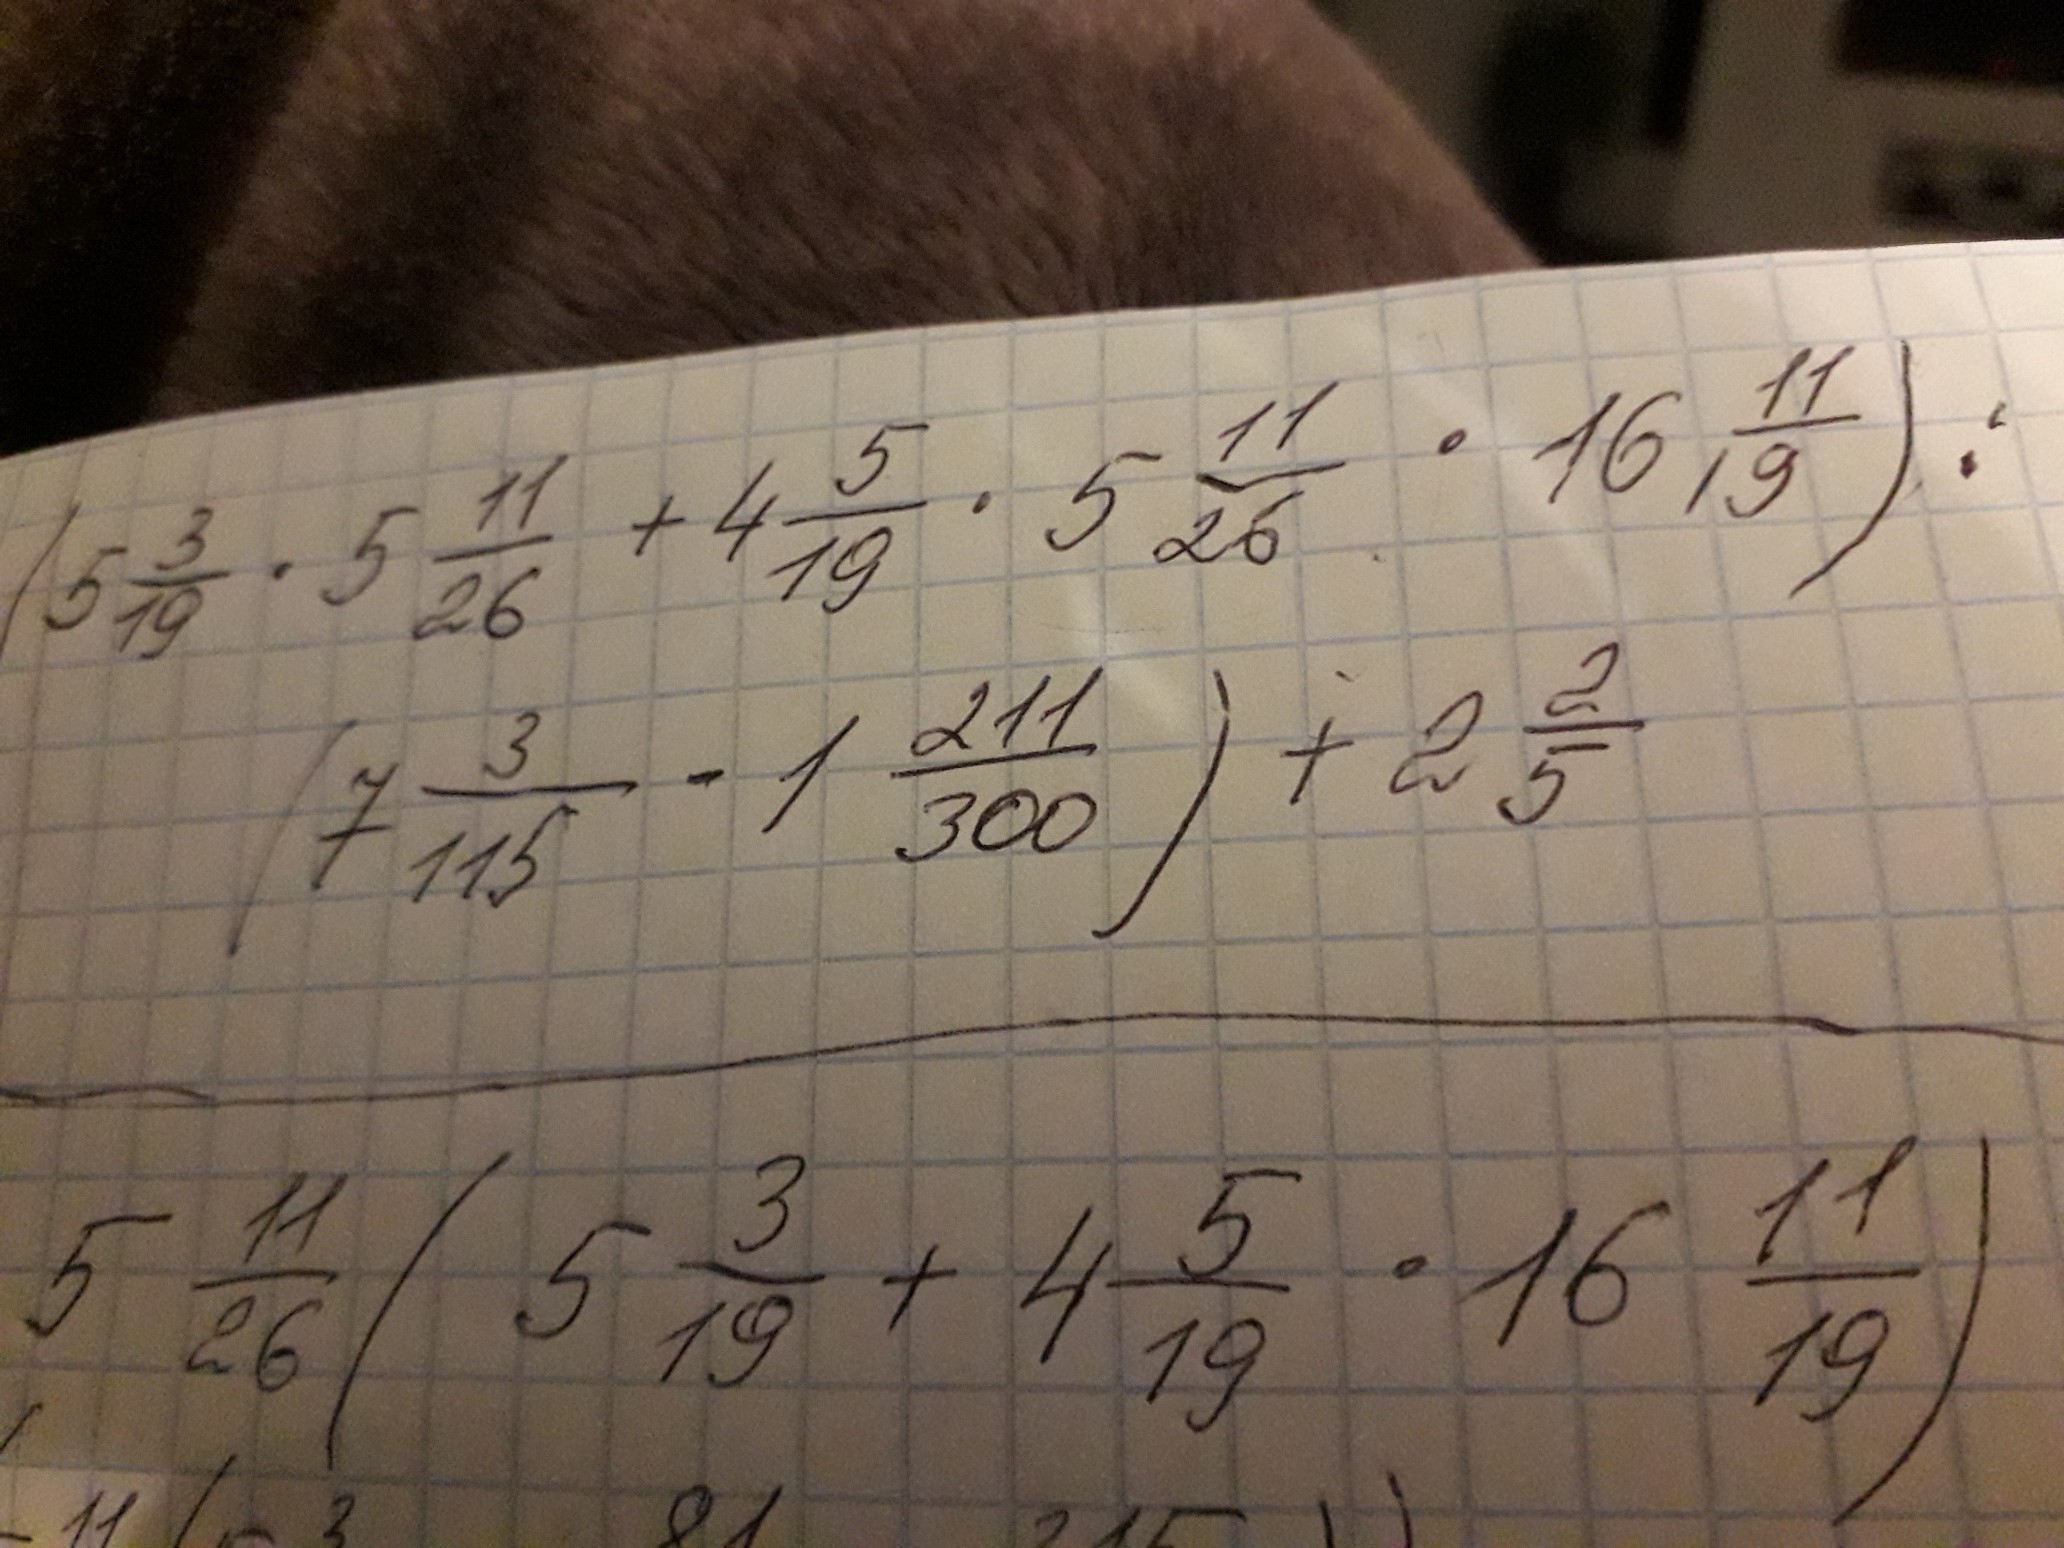 (5 3/19 · 5 11/26 + 4 5/19 · 5 11/26 · 16 11/19) :
(7 3/115 - 1 211/300) + 2 2/5
5 11/26 (5 3/19 + 4 5/19 · 16 11/19)
11 ( 3 81 315 ))